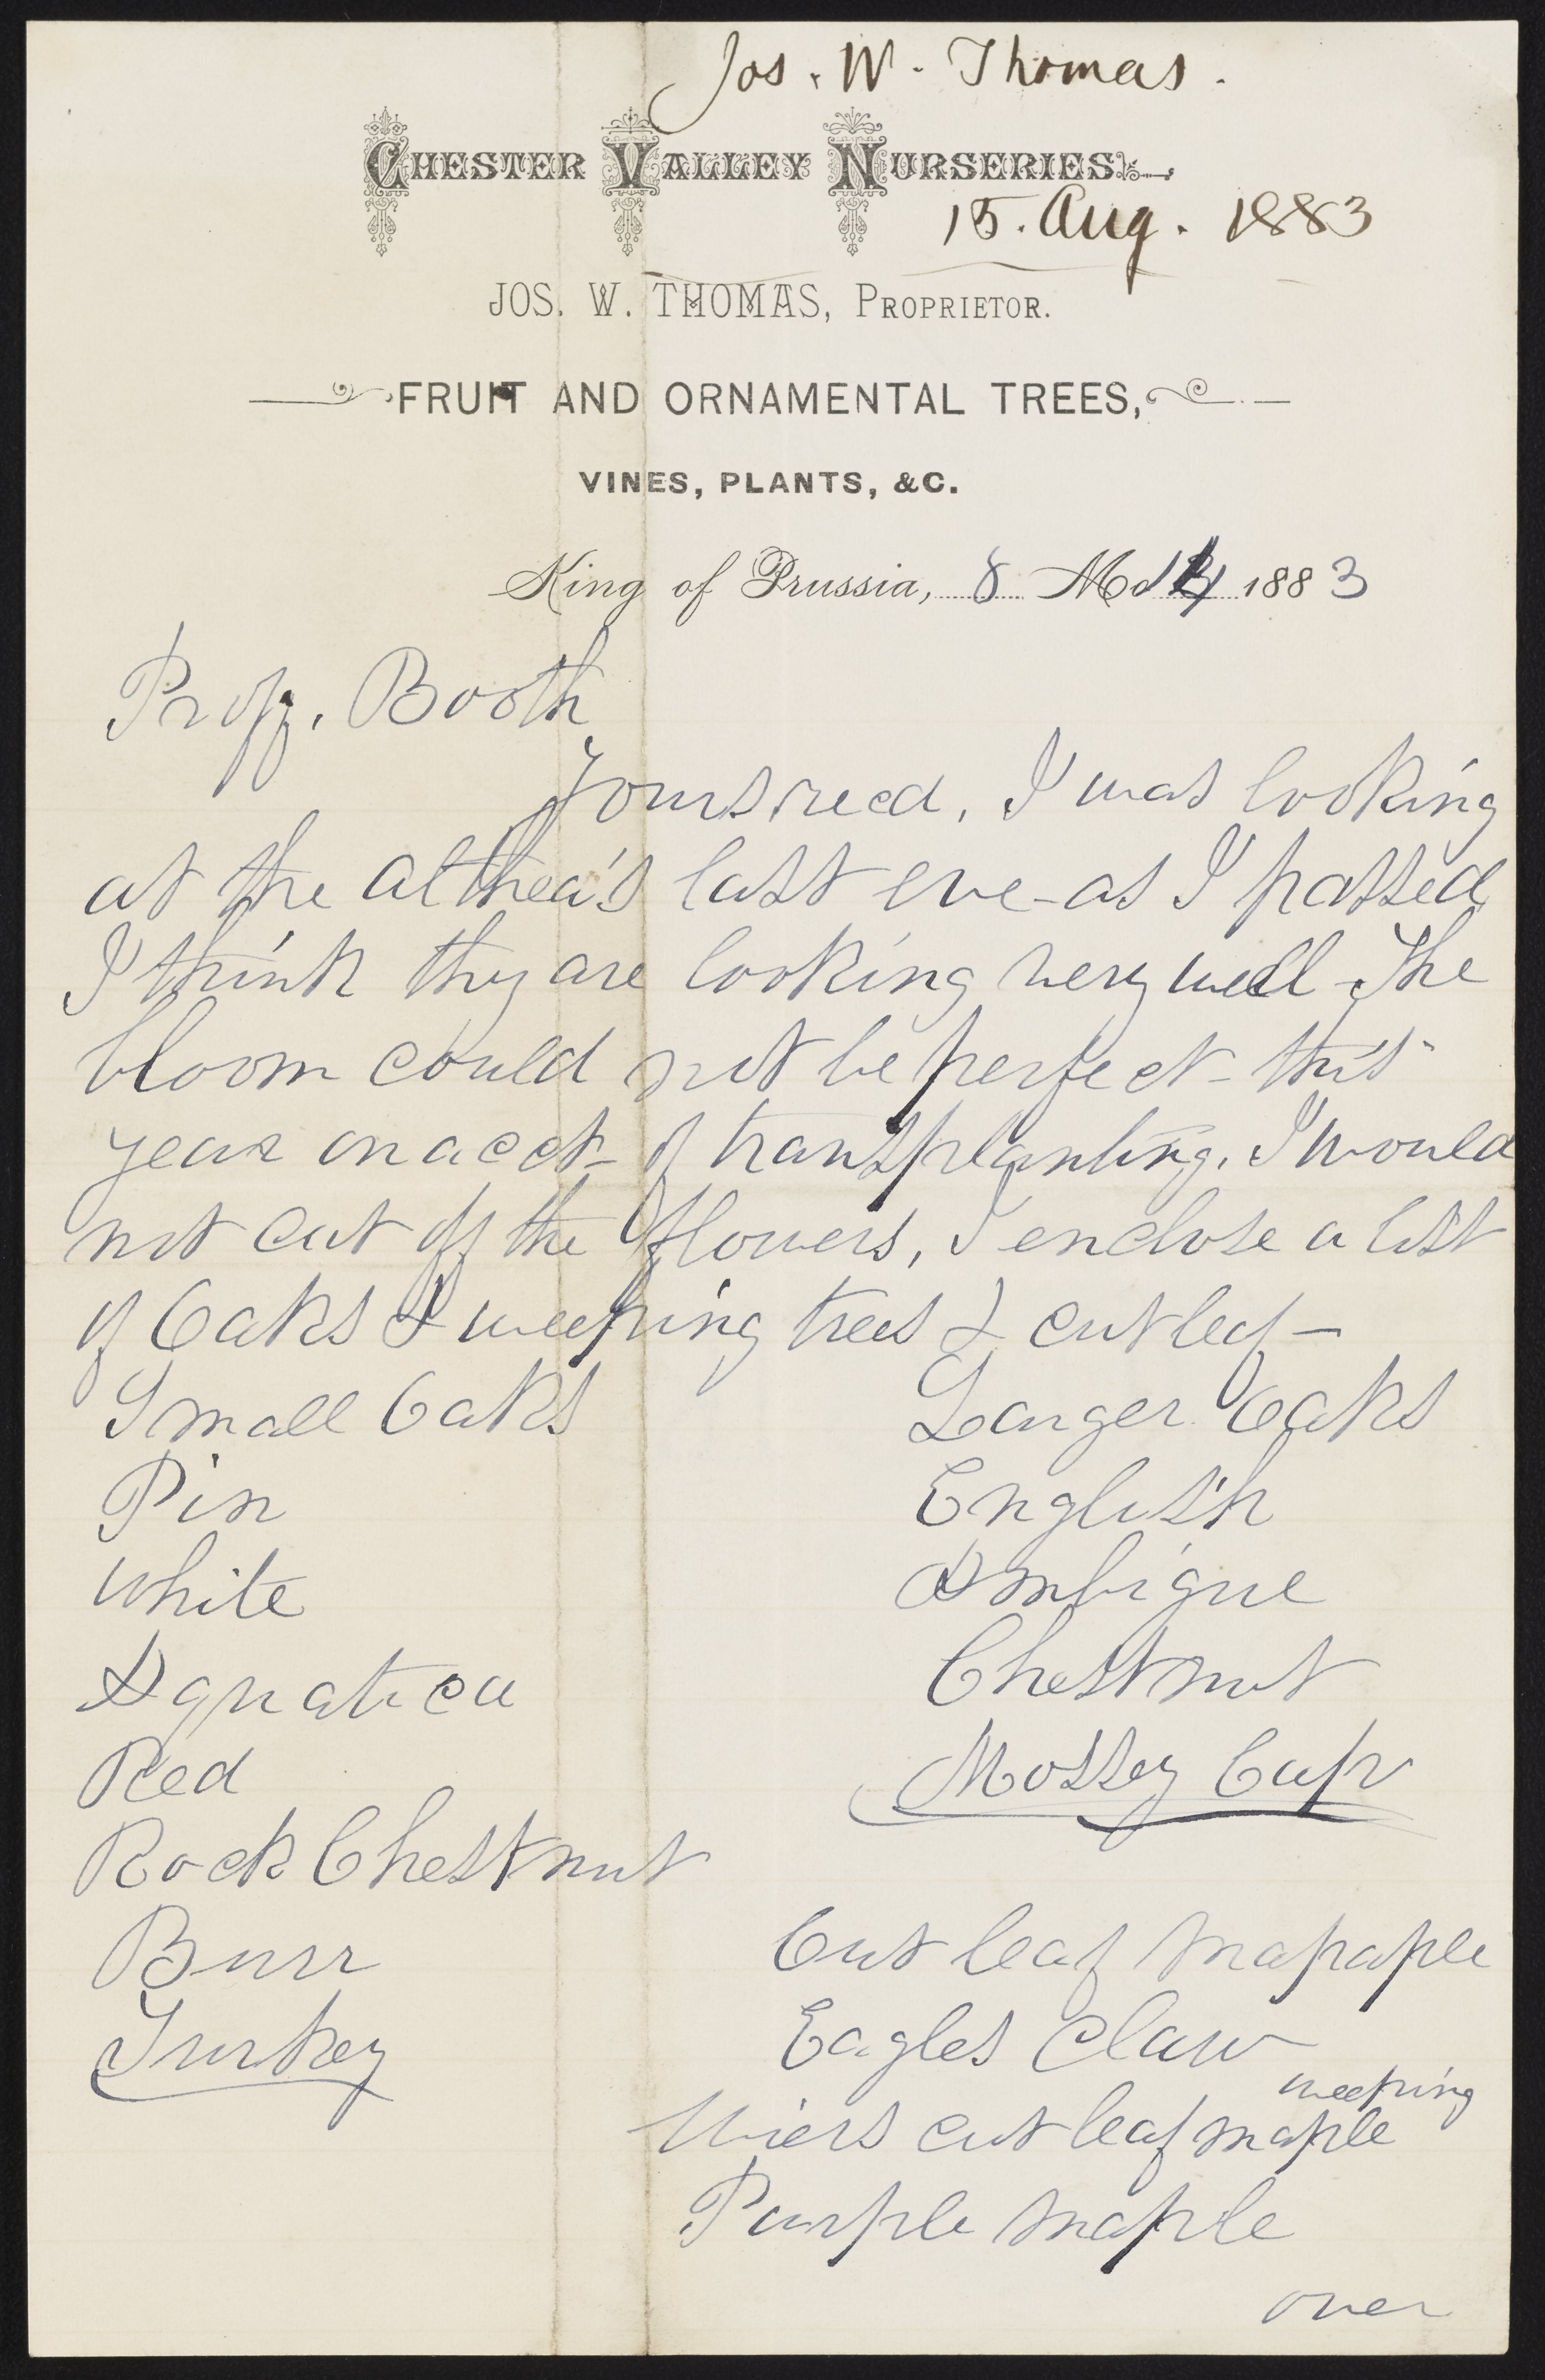 Jos. W. Thomas.
CHESTER VALLEY NURSERIES
15. Aug. 1883
JOS. W. THOMAS, PROPRIETOR.
FRUIT AND ORNAMENTAL TREES,
VINES, PLANTS, &C.
King of Prussia, 8 Mo 14 1883
Prof. Booth
Yours recd. I was looking
at the Althea's last eve - as I passed
I think they are looking very well - The
bloom could not be perfect - this
year on acct - of transplanting. I would
not cut off the flowers, I enclose a list
of Oaks & weeping trees & cut leaf -
Small Oaks
Pin
White
Aquatica
Red
Rock Chestnut
Burr
Turkey
Larger Oaks
English
Ambigue
Chestnut
Mossey Cup
Cut leaf mapaple
Eagles Claw
weeping
Wiers cut leaf maple
Purple maple
over